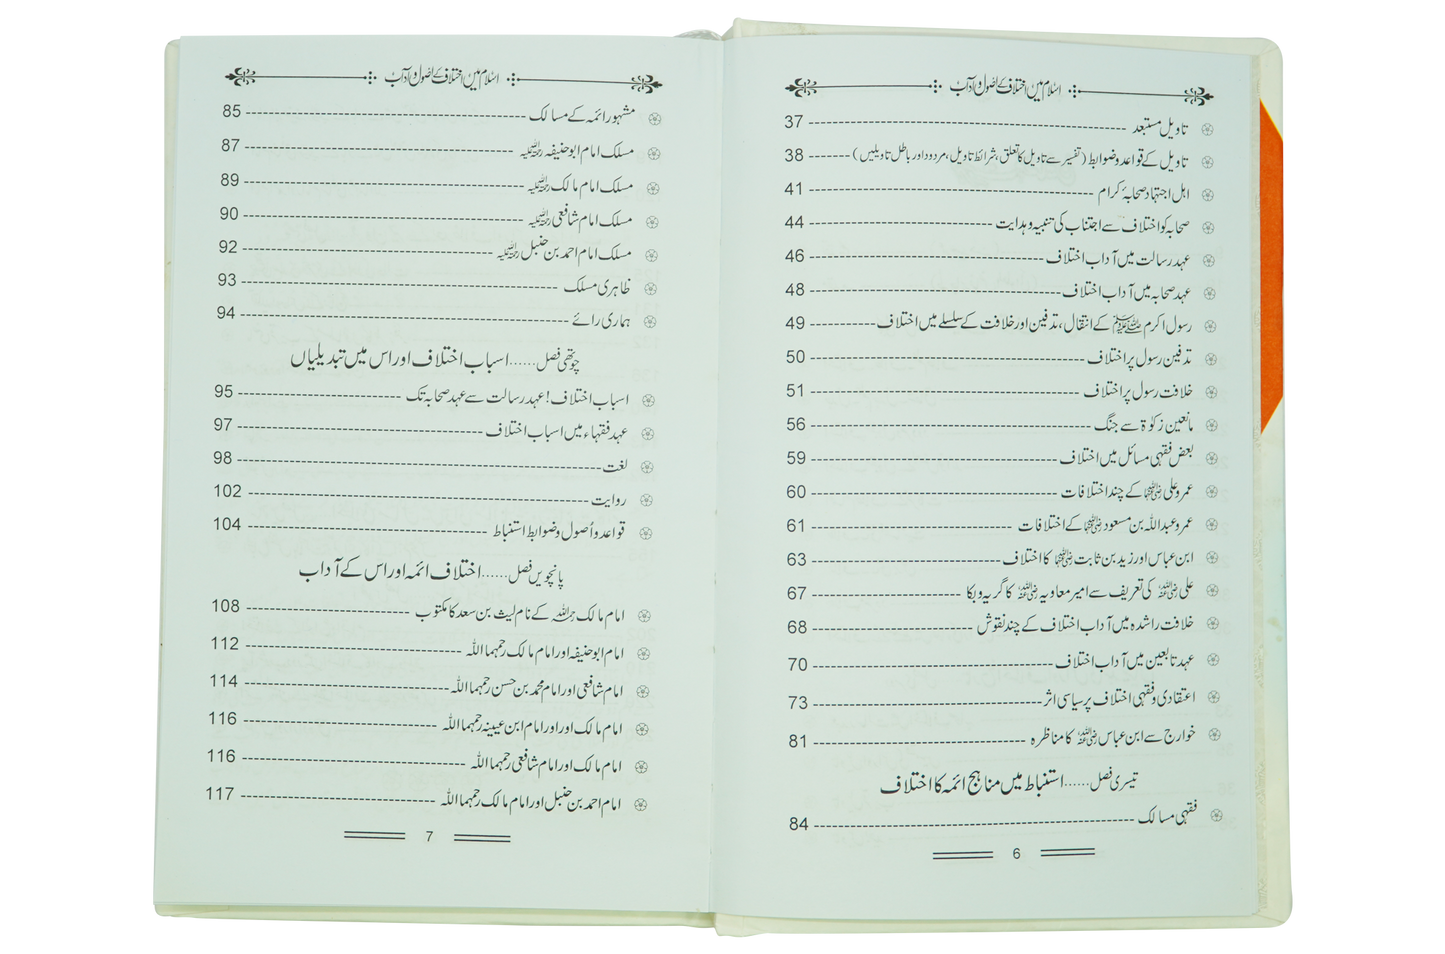 اسلام میں اختلاف کے اصول و آداب
تاویل مستبعد ---- 37
تاویل کے قواعد و ضوابط (تفسیر سے تاویل کا تعلق، شرائط تاویل، مردود اور باطل تاویلیں) ---- 38
اہل اجتہاد صحابۂ کرام ---- 41
صحابہ کو اختلاف سے اجتناب کی تنبیہ و ہدایت ---- 44
عہد رسالت میں آداب اختلاف ---- 46
عہد صحابہ میں آداب اختلاف ---- 48
رسول اکرم ﷺ کے انتقال، تدفین اور خلافت کے سلسلے میں اختلاف ---- 49
تدفین رسول پر اختلاف ---- 50
خلافت رسول پر اختلاف ---- 51
مانعین زکوٰۃ سے جنگ ---- 56
بعض فقہی مسائل میں اختلاف ---- 59
عمر و علی رضی اللہ عنہما کے چند اختلافات ---- 60
عمر و عبداللہ بن مسعود رضی اللہ عنہما کے اختلافات ---- 61
ابن عباس اور زید بن ثابت رضی اللہ عنہما کا اختلاف ---- 63
علی رضی اللہ عنہ کی تعریف سے امیر معاویہ رضی اللہ عنہ کا گریہ و بکا ---- 67
خلافت راشدہ میں آداب اختلاف کے چند نقوش ---- 68
عہد تابعین میں آداب اختلاف ---- 70
اعتقادی و فقہی اختلاف پر سیاسی اثر ---- 73
خوارج سے ابن عباس رضی اللہ عنہ کا مناظرہ ---- 81
تیسری فصل...... استنباط میں مناہج ائمہ کا اختلاف
فقہی مسالک ---- 84
6
اسلام میں اختلاف کے اصول و آداب
مشہور ائمہ کے مسالک ---- 85
مسلک امام ابوحنیفہ رحمۃ اللہ علیہ ---- 87
مسلک امام مالک رحمۃ اللہ علیہ ---- 89
مسلک امام شافعی رحمۃ اللہ علیہ ---- 90
مسلک امام احمد بن حنبل رحمۃ اللہ علیہ ---- 92
ظاہری مسلک ---- 93
ہماری رائے ---- 94
چوتھی فصل...... اسباب اختلاف اور اس میں تبدیلیاں
اسباب اختلاف! عہد رسالت سے عہد صحابہ تک ---- 95
عہد فقہاء میں اسباب اختلاف ---- 97
لغت ---- 98
روایت ---- 102
قواعد و اُصول و ضوابط استنباط ---- 104
پانچویں فصل...... اختلاف ائمہ اور اس کے آداب
امام مالک رحمہ اللہ کے نام لیث بن سعد کا مکتوب ---- 108
امام ابوحنیفہ اور امام مالک رحمہما اللہ ---- 112
امام شافعی اور امام محمد بن حسن رحمہما اللہ ---- 114
امام مالک اور اور امام ابن عیینہ رحمہما اللہ ---- 116
امام مالک اور امام شافعی رحمہما اللہ ---- 116
امام احمد بن حنبل اور امام مالک رحمہما اللہ ---- 117
7